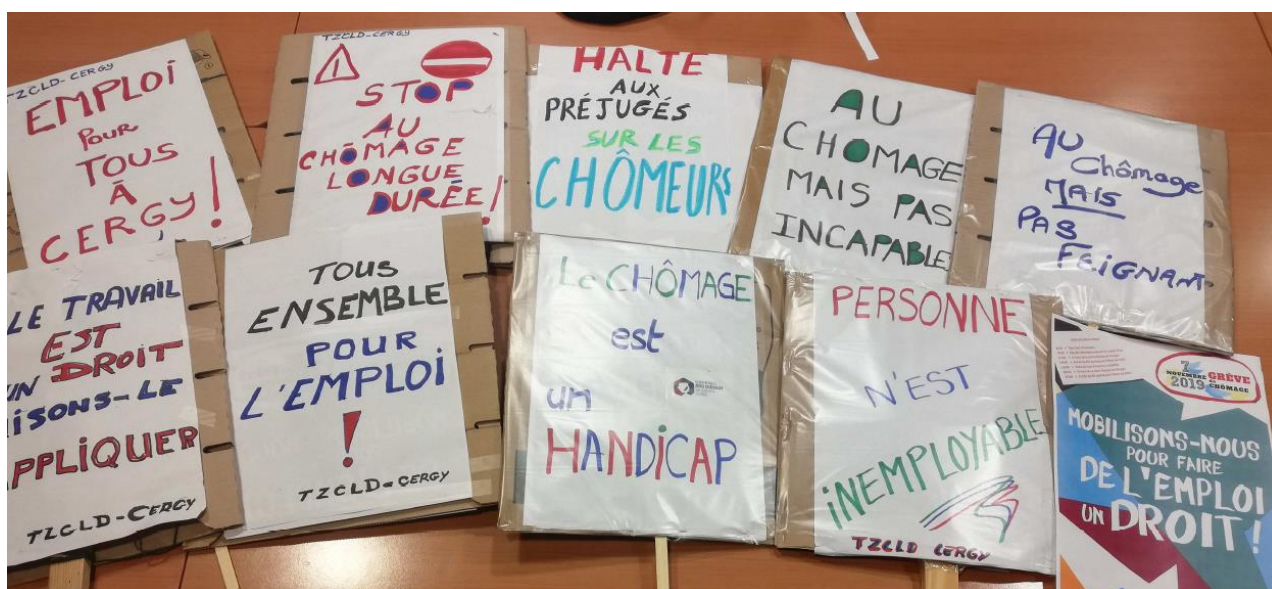 TZCLD-CERGY
EMPLOi
POUR
TOUS
À
CERGY!
TZCLD-CERGY
!
STOP
AU
CHÔMAGE
LONGUE
DURÉE!
HALTE
AUX
PRÉJUGÉS
SUR LES
CHÔMEURS
AU
CHOMAGE
MAIS PAS
INCAPABLE
AU
Chômage
MAIS
PAS
FEIGNANT
LE TRAVAIL
EST
UN DROIT
AISONS-LE
APPLIQUER
TZCLD-CERGY
TOUS
ENSEMBLE
POUR
L'EMPLOI
!
TZCLD-CERGY
Le CHÔMAGE
est
un
HANDiCAP
PERSONNE
N'EST
iNEMPLOYABLE
TZCLD CERGY
7
NOVEMBRE
2019
GRÈVE
DU CHÔMAGE
MOBILISONS-NOUS
POUR FAIRE
DE L'EMPLOI
UN DROIT !